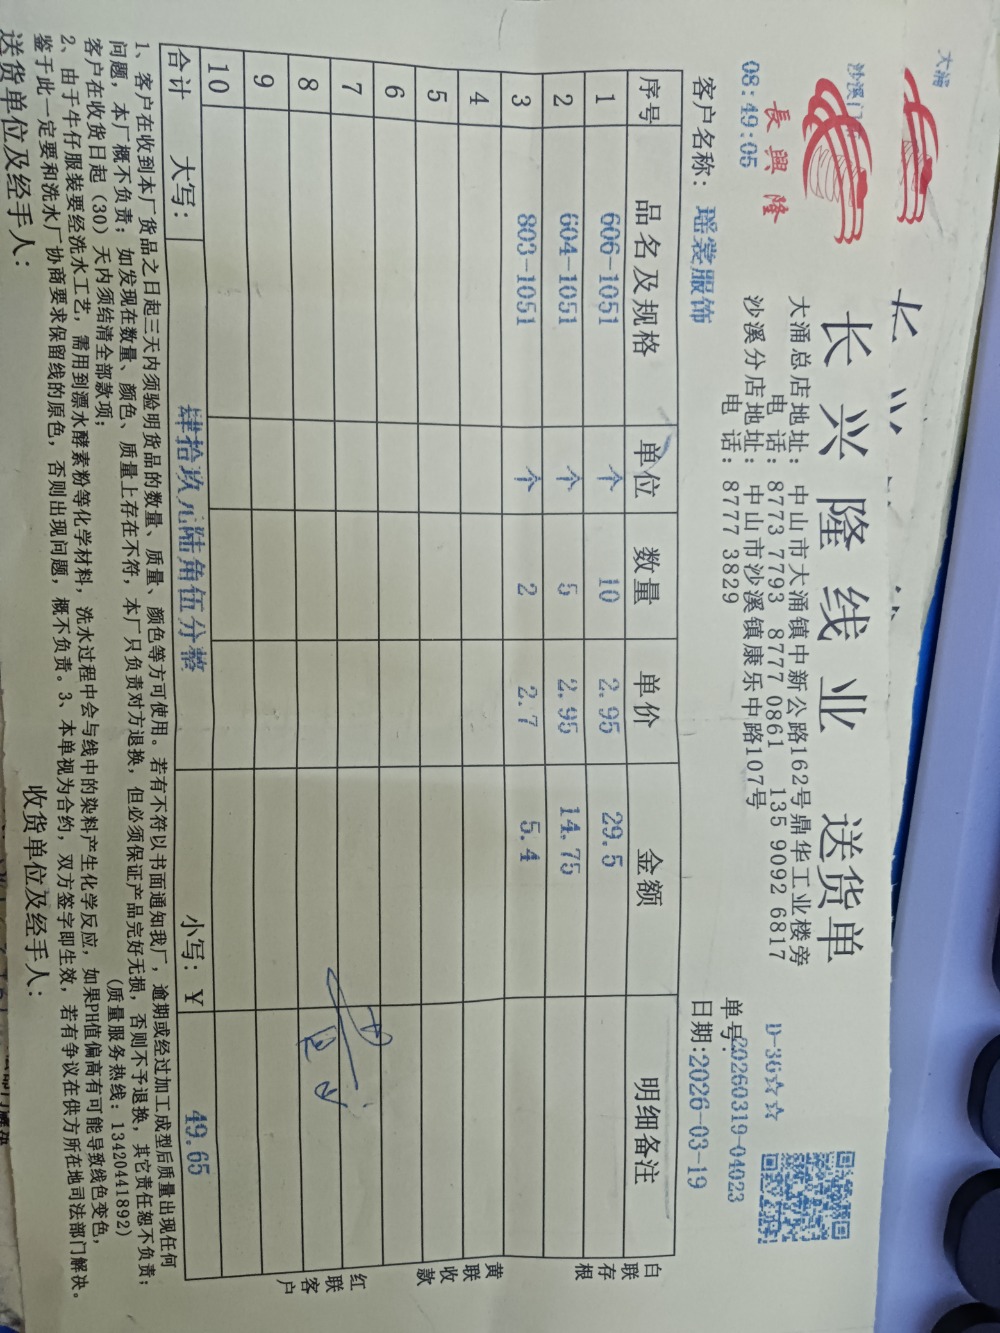 大涌
沙溪门
08:49:05
長興隆
长兴隆线业 送货单
大涌总店地址:中山市大涌镇中新公路162号鼎华工业楼旁
电 话:8773 7793 8777 0861 135 9092 6817
沙溪分店地址:中山市沙溪镇康乐中路107号
电 话:8777 3829
D-36☆☆
单号:20260319-04023
客户名称:瑶裳服饰 日期:2026-03-19
序号 品名及规格 单位 数量 单价 金额 明细备注
1 606-1051 个 10 2.95 29.5
2 604-1051 个 5 2.95 14.75
3 803-1051 个 2 2.7 5.4
4
5
6
7
8
9
10
合计 大写: 肆拾玖元陆角伍分整 小写:¥ 49.65
白联存根
黄联收款
红联客户
1、客户在收到本厂货品之日起三天内须验明货品的数量、质量、颜色等方可使用。若有不符以书面通知我厂,逾期或经过加工成型后质量出现任何
问题,本厂概不负责;如发现在数量、颜色、质量上存在不符,本厂只负责对方退换,但必须保证产品完好无损,否则不予退换,其它责任恕不负责;
客户在收货日起(30)天内须结清全部款项; (质量服务热线:13420441892)
2、由于牛仔服装要经洗水工艺,需用到漂水酵素粉等化学材料,洗水过程中会与线中的染料产生化学反应,如果PH值偏高有可能导致线色变色,
鉴于此一定要和洗水厂协商要求保留线的原色,否则出现问题,概不负责。3、本单视为合约,双方签字即生效,若有争议在供方所在地司法部门解决。
送货单位及经手人: 收货单位及经手人: